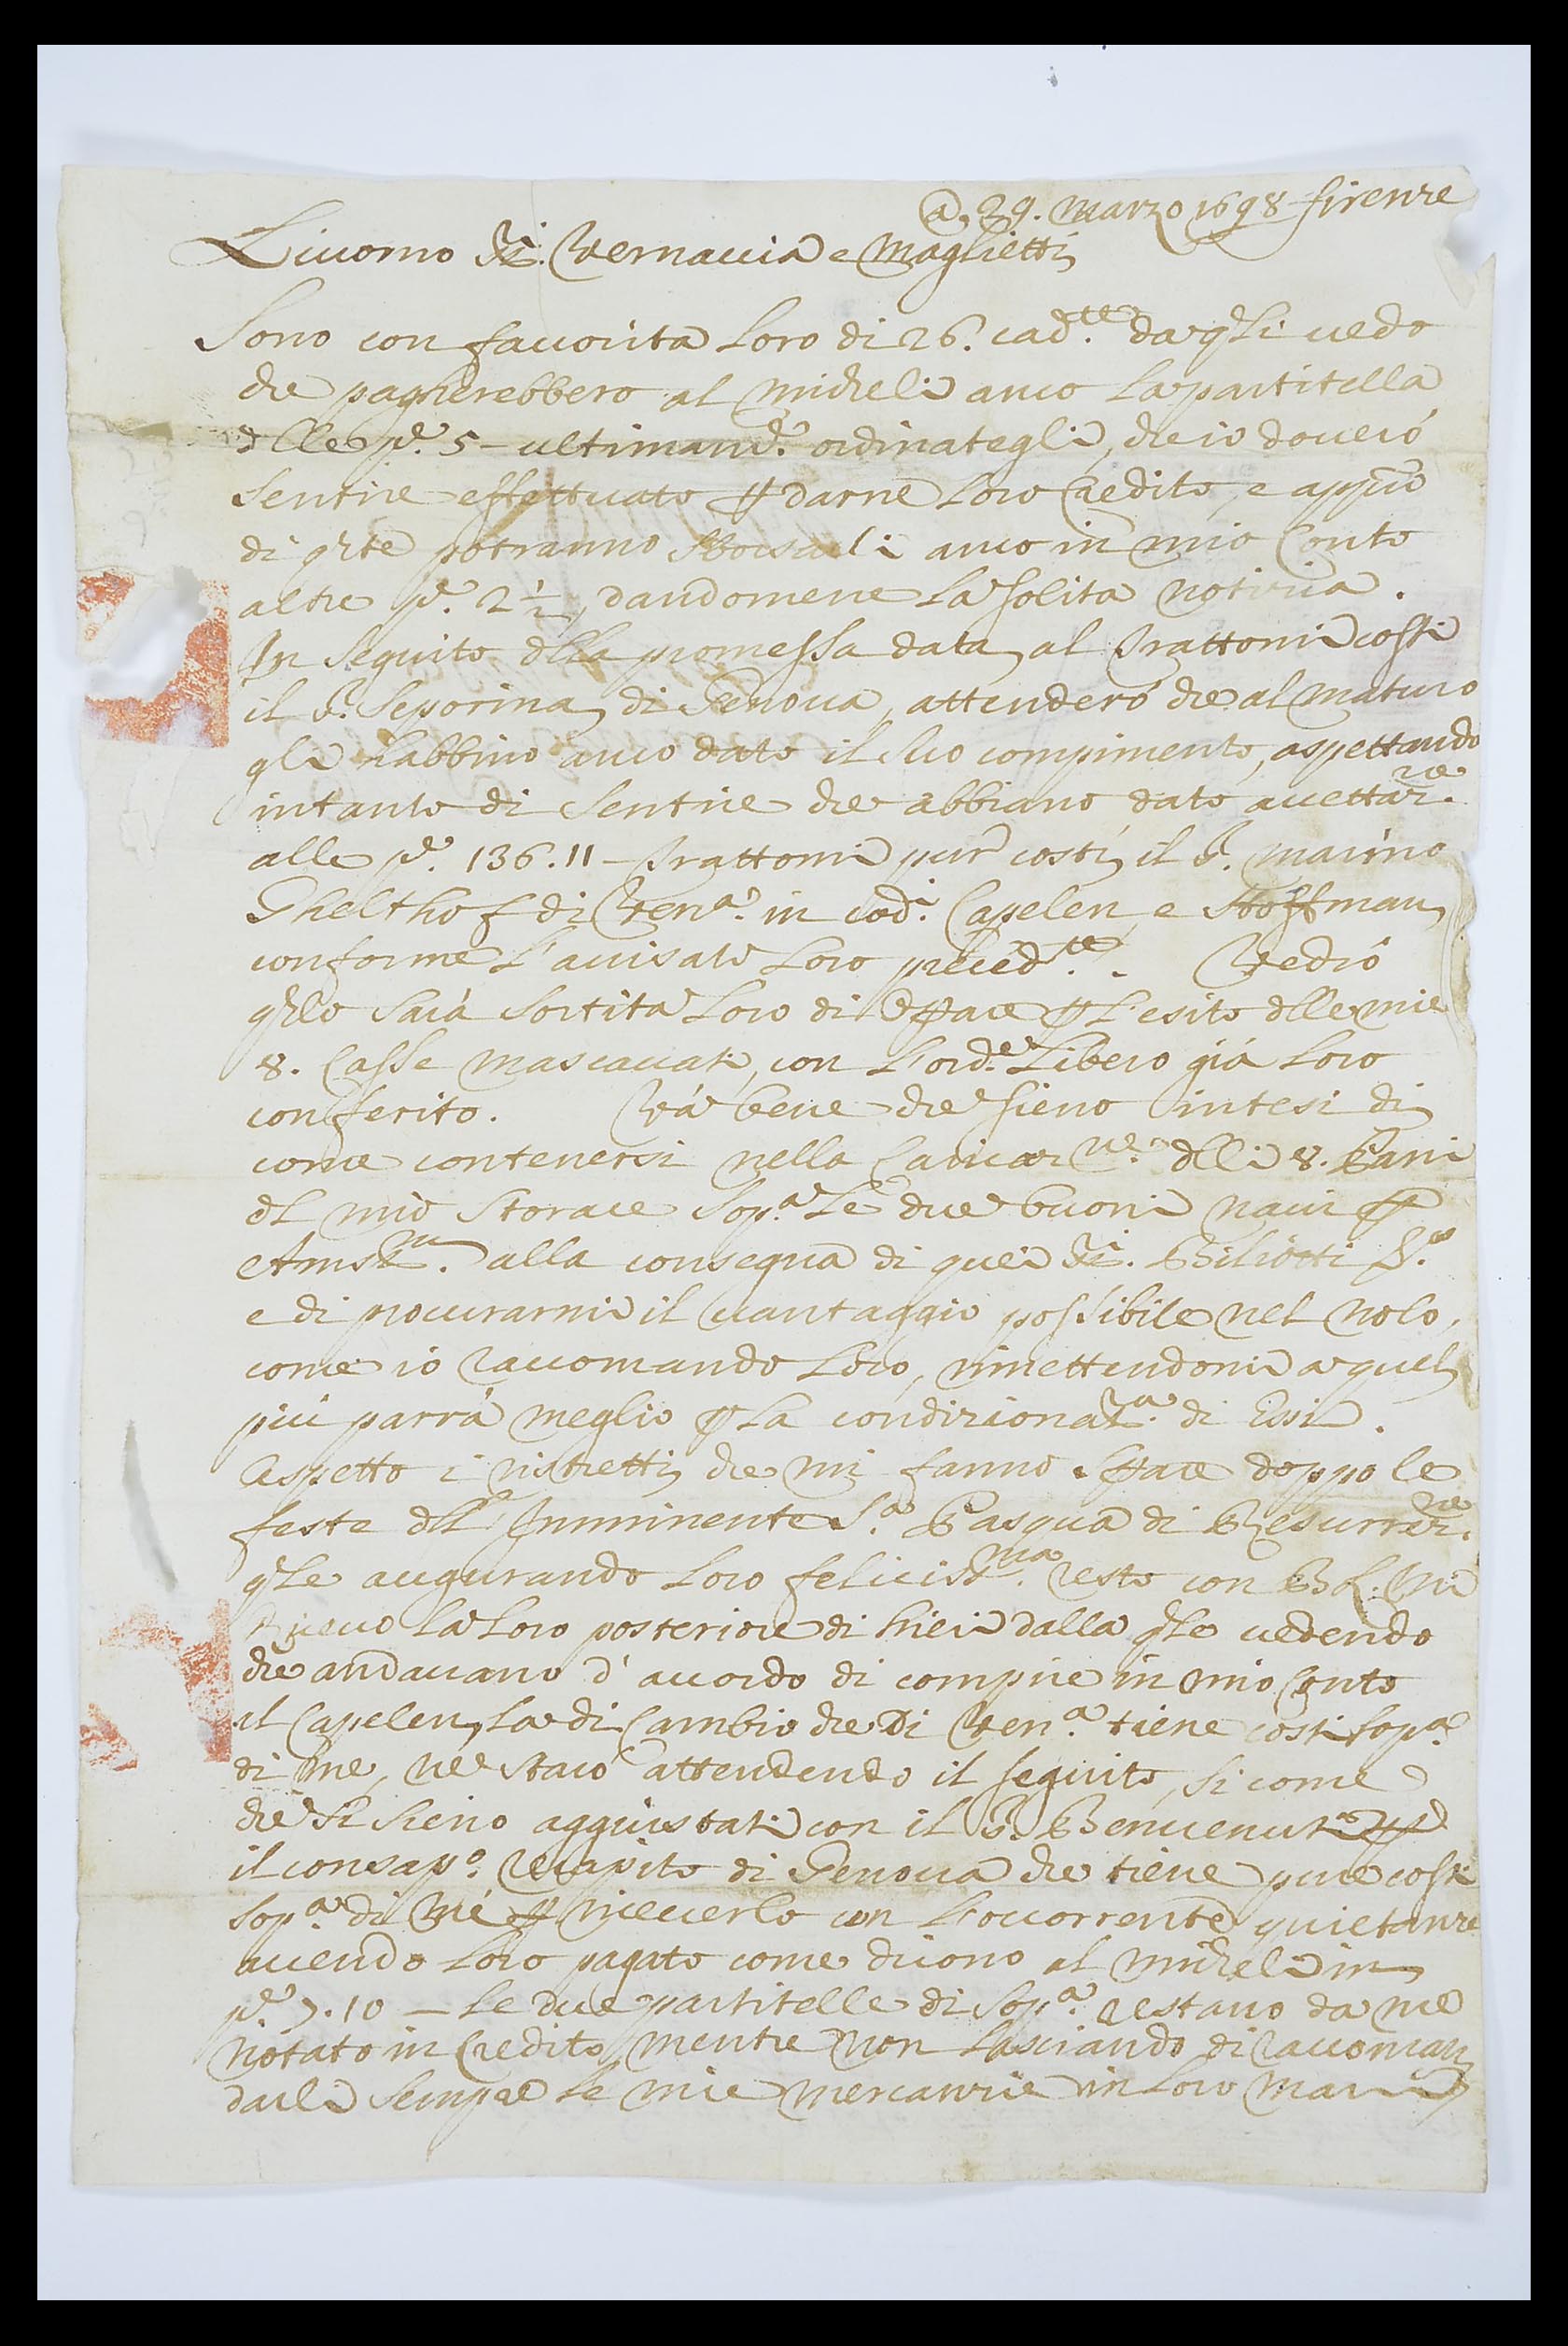 @, 29. Marzo 1698 firenze
Liuorno SS.ri Vernaccia e Maglietti
Sono con fauorita Loro di 26. cad.te da q.li uedo
che pagherebbero al Micheli anco la partitella
dlle p.e 5 - ultimam.te ordinategli, che io douerò
sentire effettuato p darne Loro Credito, e app.o
di q.ste potranno sborsarli anco in mio Conto
altre p.e 2 1/2, dandomene la solita notizia.
In seguito dlla promessa data al Trattomi costì
il S. Seporina di Genoua, attenderò che al maturo
gli habbino anco dato il suo compimento, aspettando
intanto di sentire che abbiano dato accettaz.ne
alle p.e 136.11 - Trattomi pur costì il S. Marino
Ghelthof di Ven.a in cod.i Capelen e Hoffman,
conforme l'auisato Loro preced.te. Vedrò
q.llo sarà sortita Loro di oppare p l'esito dlle mie
8. Casse mascauati, con l'ord.e Libero già Loro
conferito. Và bene che sieno intesi di
come contenersi nella Caricaz.ne dlli 8. Pani
dl mio Storace sop.a le due buoni naui p
Amst.m alla consegna di quei SS.ri Biliotti
e di procurarmi il uantaggio possibile nel nolo,
come io raccomando Loro, rimettendomi a quel
più parrà meglio p la condizionat.a di Essi.
Aspetto i ristretti che mi fanno sppare doppo le
feste dll'Imminente S.a Pasqua di Resurrez.ne
q.le augurando Loro feliciss.ma resto con B.L.M.
Riceuo la Loro posteriore di hieri dalla q.le uedendo
che andauano d'accordo di compire in mio Conto
al Capelen, la di Cambio che Di Ven.a tiene costì sop.a
di me, ne starò attendendo il seguito, si come
che si sieno aggiustati con il S. Benuenuti p
il consap.o recapito di Genoua che tiene pure costì
sop.a di me p riceuerlo con l'occorrente quietanze
auendo Loro pagato come dicono al Micheli in
p.e 7.10 - Le due partitelle di sop.a restano da me
notato in Credito, mentre non lasciando di raccoman
darli sempre le mie mercanzie in Loro mani